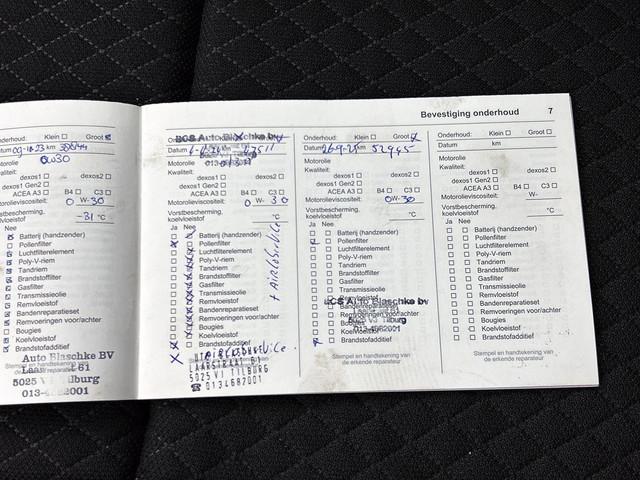 Bevestiging onderhoud 7
Onderhoud: Klein Groot
Datum 09-11-23 km
Motorolie 0W30
Kwaliteit:
dexos1 dexos2
dexos1 Gen2
ACEA A3 B4 C3
Motorolieviscositeit: 0 W-30
Vorstbescherming,
koelvloeistof -31 °C
Nee
Batterij (handzender)
Pollenfilter
Luchtfilterelement
Poly-V-riem
Tandriem
Brandstoffilter
Gasfilter
Transmissieolie
Remvloeistof
Bandenreparatieset
Remvoeringen voor/achter
Bougies
Koelvloeistof
Brandstofadditief
Auto Blaschke BV
Laarstraat 61
5025 V Tilburg
013-4682001
BCS Auto Blaschke bv
Datum km
Motorolie
Kwaliteit:
dexos1 dexos2
dexos1 Gen2
ACEA A3 B4 C3
Motorolieviscositeit: 0 W-30
Vorstbescherming,
koelvloeistof °C
Ja Nee
Batterij (handzender)
Pollenfilter
Luchtfilterelement
Poly-V-riem
Tandriem
Brandstoffilter
Gasfilter
Transmissieolie
Remvloeistof
Bandenreparatieset
Remvoeringen voor/achter
Bougies
Koelvloeistof
Brandstofadditief
+ Aircoservice
LAARSTRAAT 61
5025 VJ TILBURG
☎ 0134682001
Onderhoud: Klein Groot
Datum km 52945
Motorolie
Kwaliteit:
dexos1 dexos2
dexos1 Gen2
ACEA A3 B4 C3
Motorolieviscositeit: 0W-30
Vorstbescherming,
koelvloeistof °C
Ja Nee
Batterij (handzender)
Pollenfilter
Luchtfilterelement
Poly-V-riem
Tandriem
Brandstoffilter
Gasfilter
Transmissieolie
Remvloeistof
BCS Auto Blaschke bv
Bandenreparatieset
Remvoeringen voor/achter
Bougies
Koelvloeistof
Brandstofadditief
Stempel en handtekening van
de erkende reparateur
Onderhoud: Klein Groot
Datum km
Motorolie
Kwaliteit:
dexos1 dexos2
dexos1 Gen2
ACEA A3 B4 C3
Motorolieviscositeit: W-
Vorstbescherming,
koelvloeistof °C
Ja Nee
Batterij (handzender)
Pollenfilter
Luchtfilterelement
Poly-V-riem
Tandriem
Brandstoffilter
Gasfilter
Transmissieolie
Remvloeistof
Bandenreparatieset
Remvoeringen voor/achter
Bougies
Koelvloeistof
Brandstofadditief
Stempel en handtekening van
de erkende reparateur